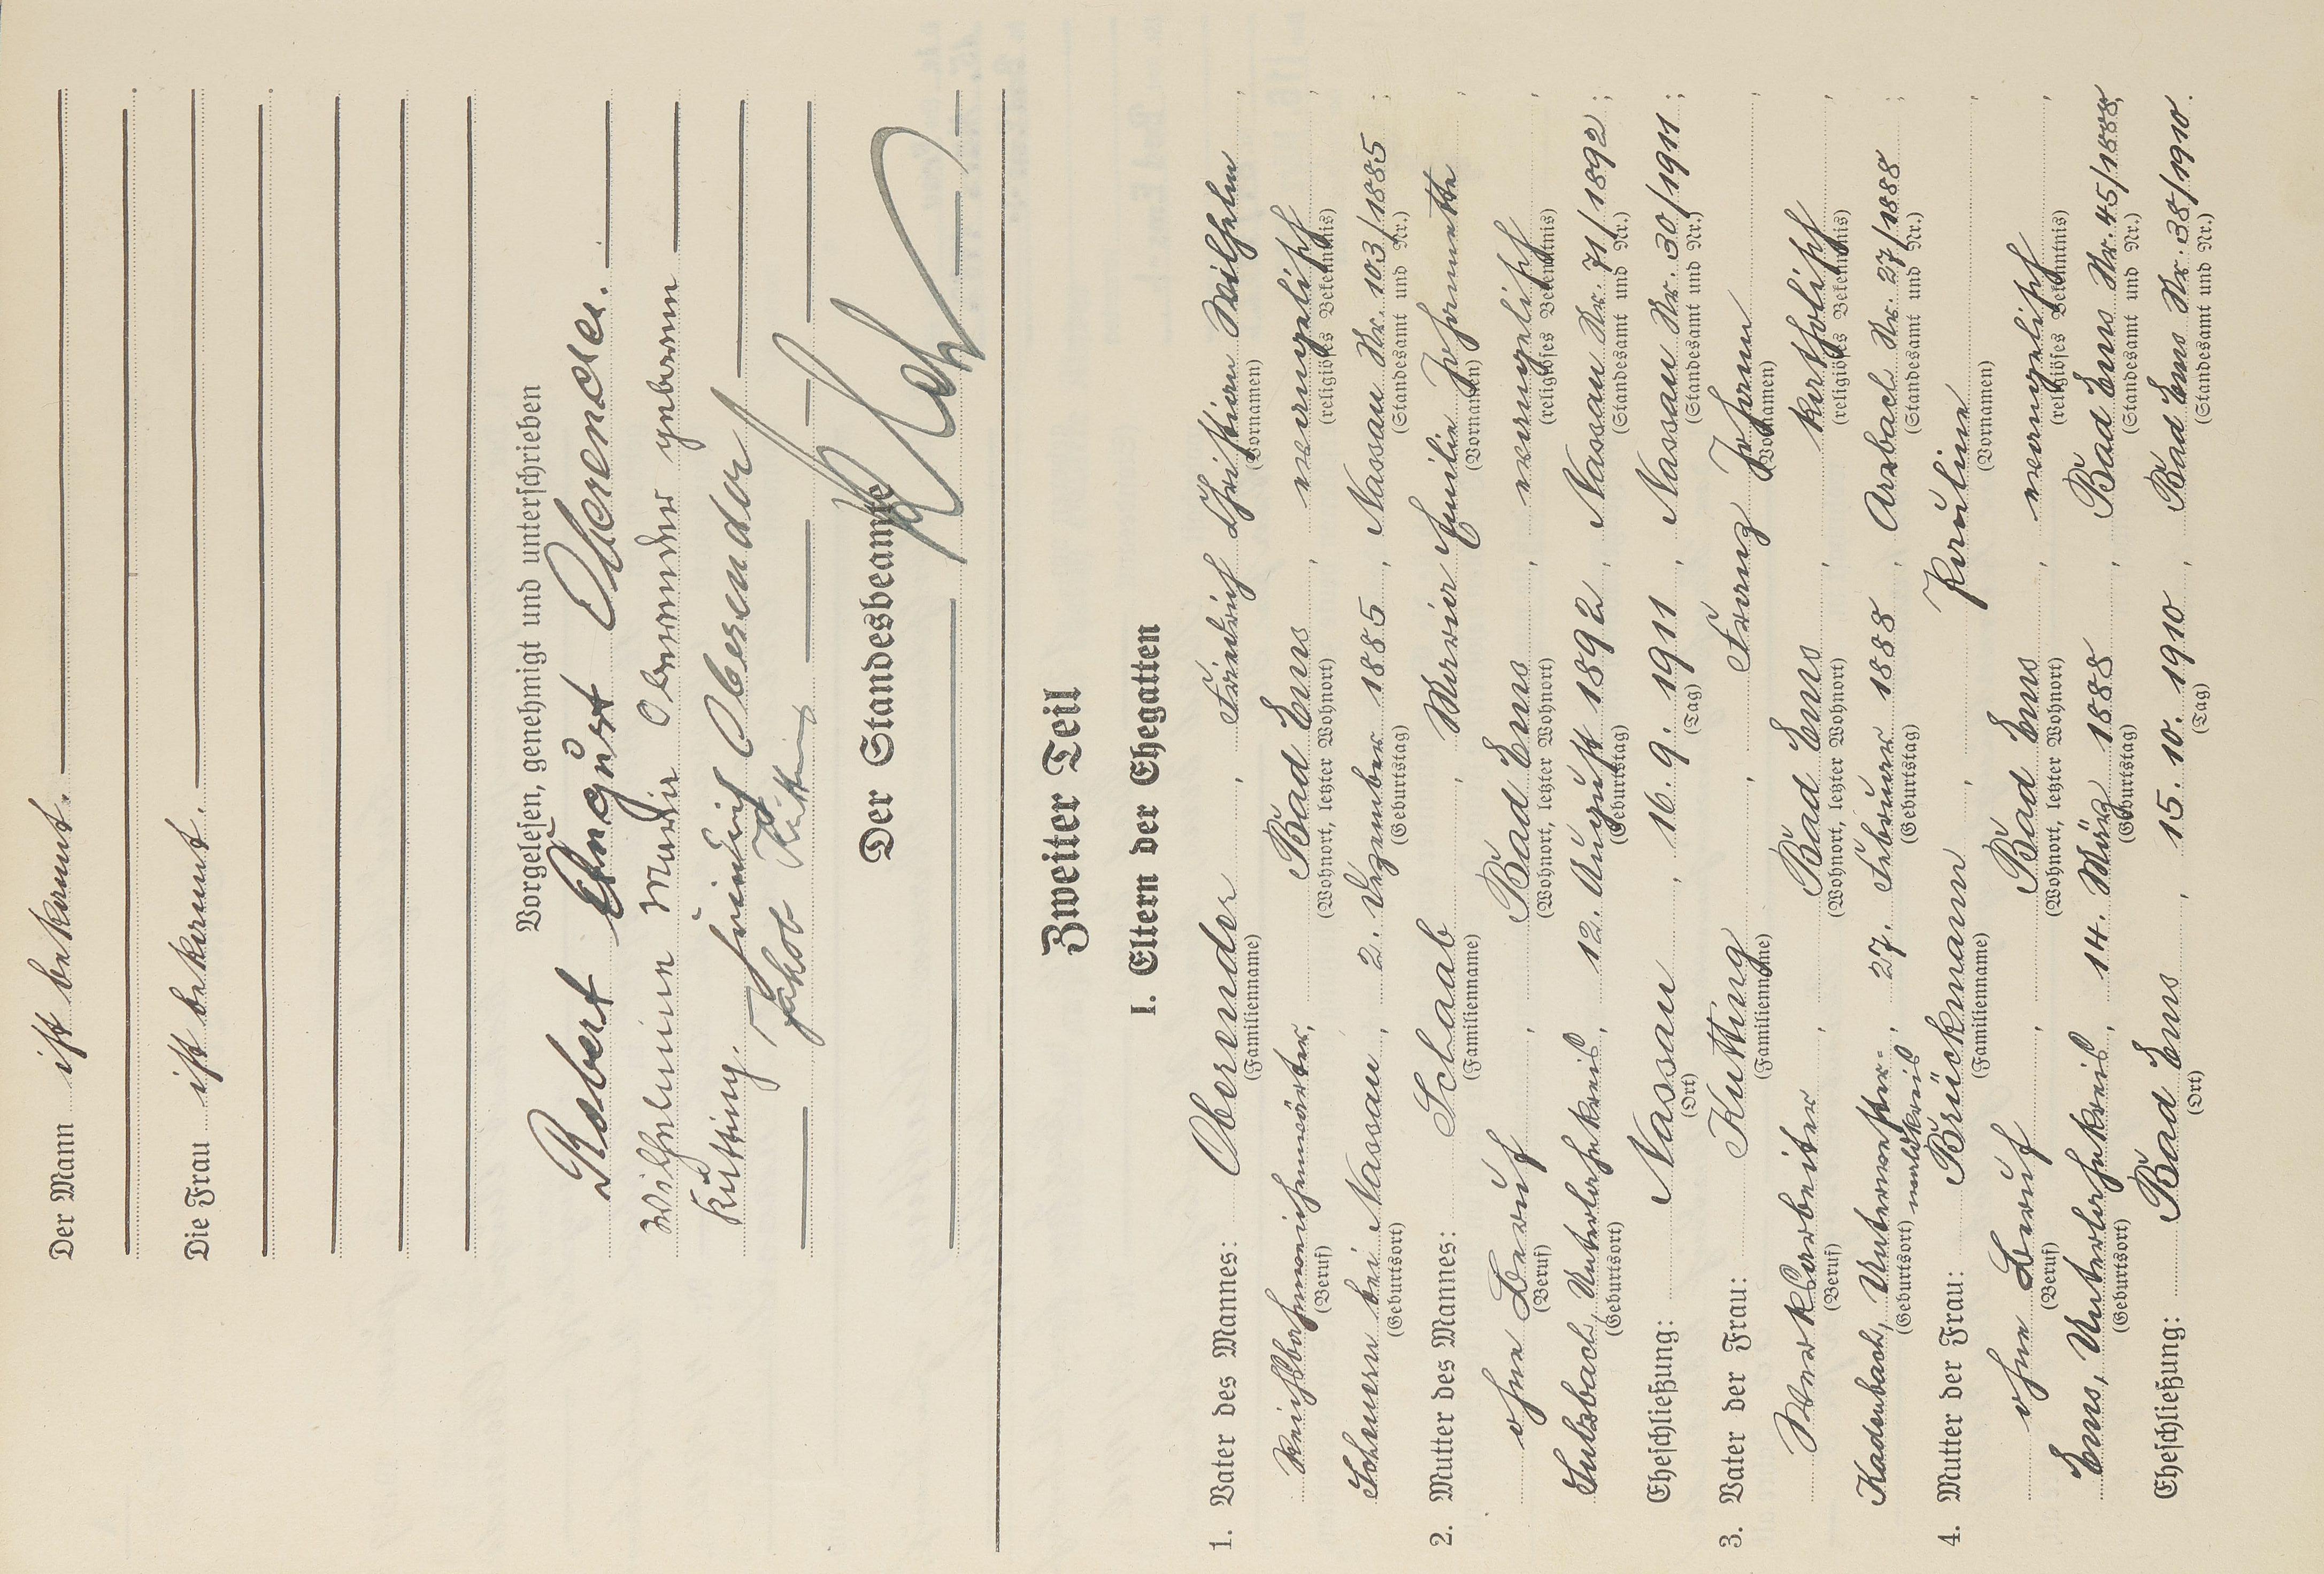 Der Mann ist bekannt.
Die Frau ist bekannt.
Vorgelesen, genehmigt und unterschrieben
Robert August Obernder.
Wilhelmine Maria Obernder geborene
Kutting.
Jakob Kutting
Der Standesbeamte
Zweiter Teil
I. Eltern der Ehegatten
1. Vater des Mannes: Obernder, Friedrich Christian Wilhelm,
(Familienname) (Vornamen)
Reichsbahnweichenwärter, Bad Ems, evangelisch,
(Beruf) (Wohnort, letzter Wohnort) (religiöses Bekenntnis)
Scheuern bei Nassau, 2. Dezember 1885, Nassau Nr. 103/1885;
(Geburtsort) (Geburtstag) (Standesamt und Nr.)
2. Mutter des Mannes: Schaab, Maria Emilie Johannette,
(Familienname) (Vornamen)
ohne Beruf, Bad Ems, evangelisch,
(Beruf) (Wohnort, letzter Wohnort) (religiöses Bekenntnis)
Sulzbach, Unterlahnkreis, 12. August 1892, Nassau Nr. 71/1892;
(Geburtsort) (Geburtstag) (Standesamt und Nr.)
Eheschließung: Nassau, 16. 9. 1911, Nassau Nr. 30/1911;
(Ort) (Tag) (Standesamt und Nr.)
3. Vater der Frau: Kutting, Franz Johann,
(Familienname) (Vornamen)
Werkarbeiter, Bad Ems, katholisch,
(Beruf) (Wohnort, letzter Wohnort) (religiöses Bekenntnis)
Kadenbach, Unterwester- 27. Februar 1888, Arzbach Nr. 27/1888;
(Geburtsort) waldkreis, (Geburtstag) (Standesamt und Nr.)
4. Mutter der Frau: Brückmann, Pauline,
(Familienname) (Vornamen)
ohne Beruf, Bad Ems, evangelisch,
(Beruf) (Wohnort, letzter Wohnort) (religiöses Bekenntnis)
Ems, Unterlahnkreis, 14. März 1888, Bad Ems Nr. 45/1888;
(Geburtsort) (Geburtstag) (Standesamt und Nr.)
Eheschließung: Bad Ems, 15. 10. 1910, Bad Ems Nr. 38/1910.
(Ort) (Tag) (Standesamt und Nr.)